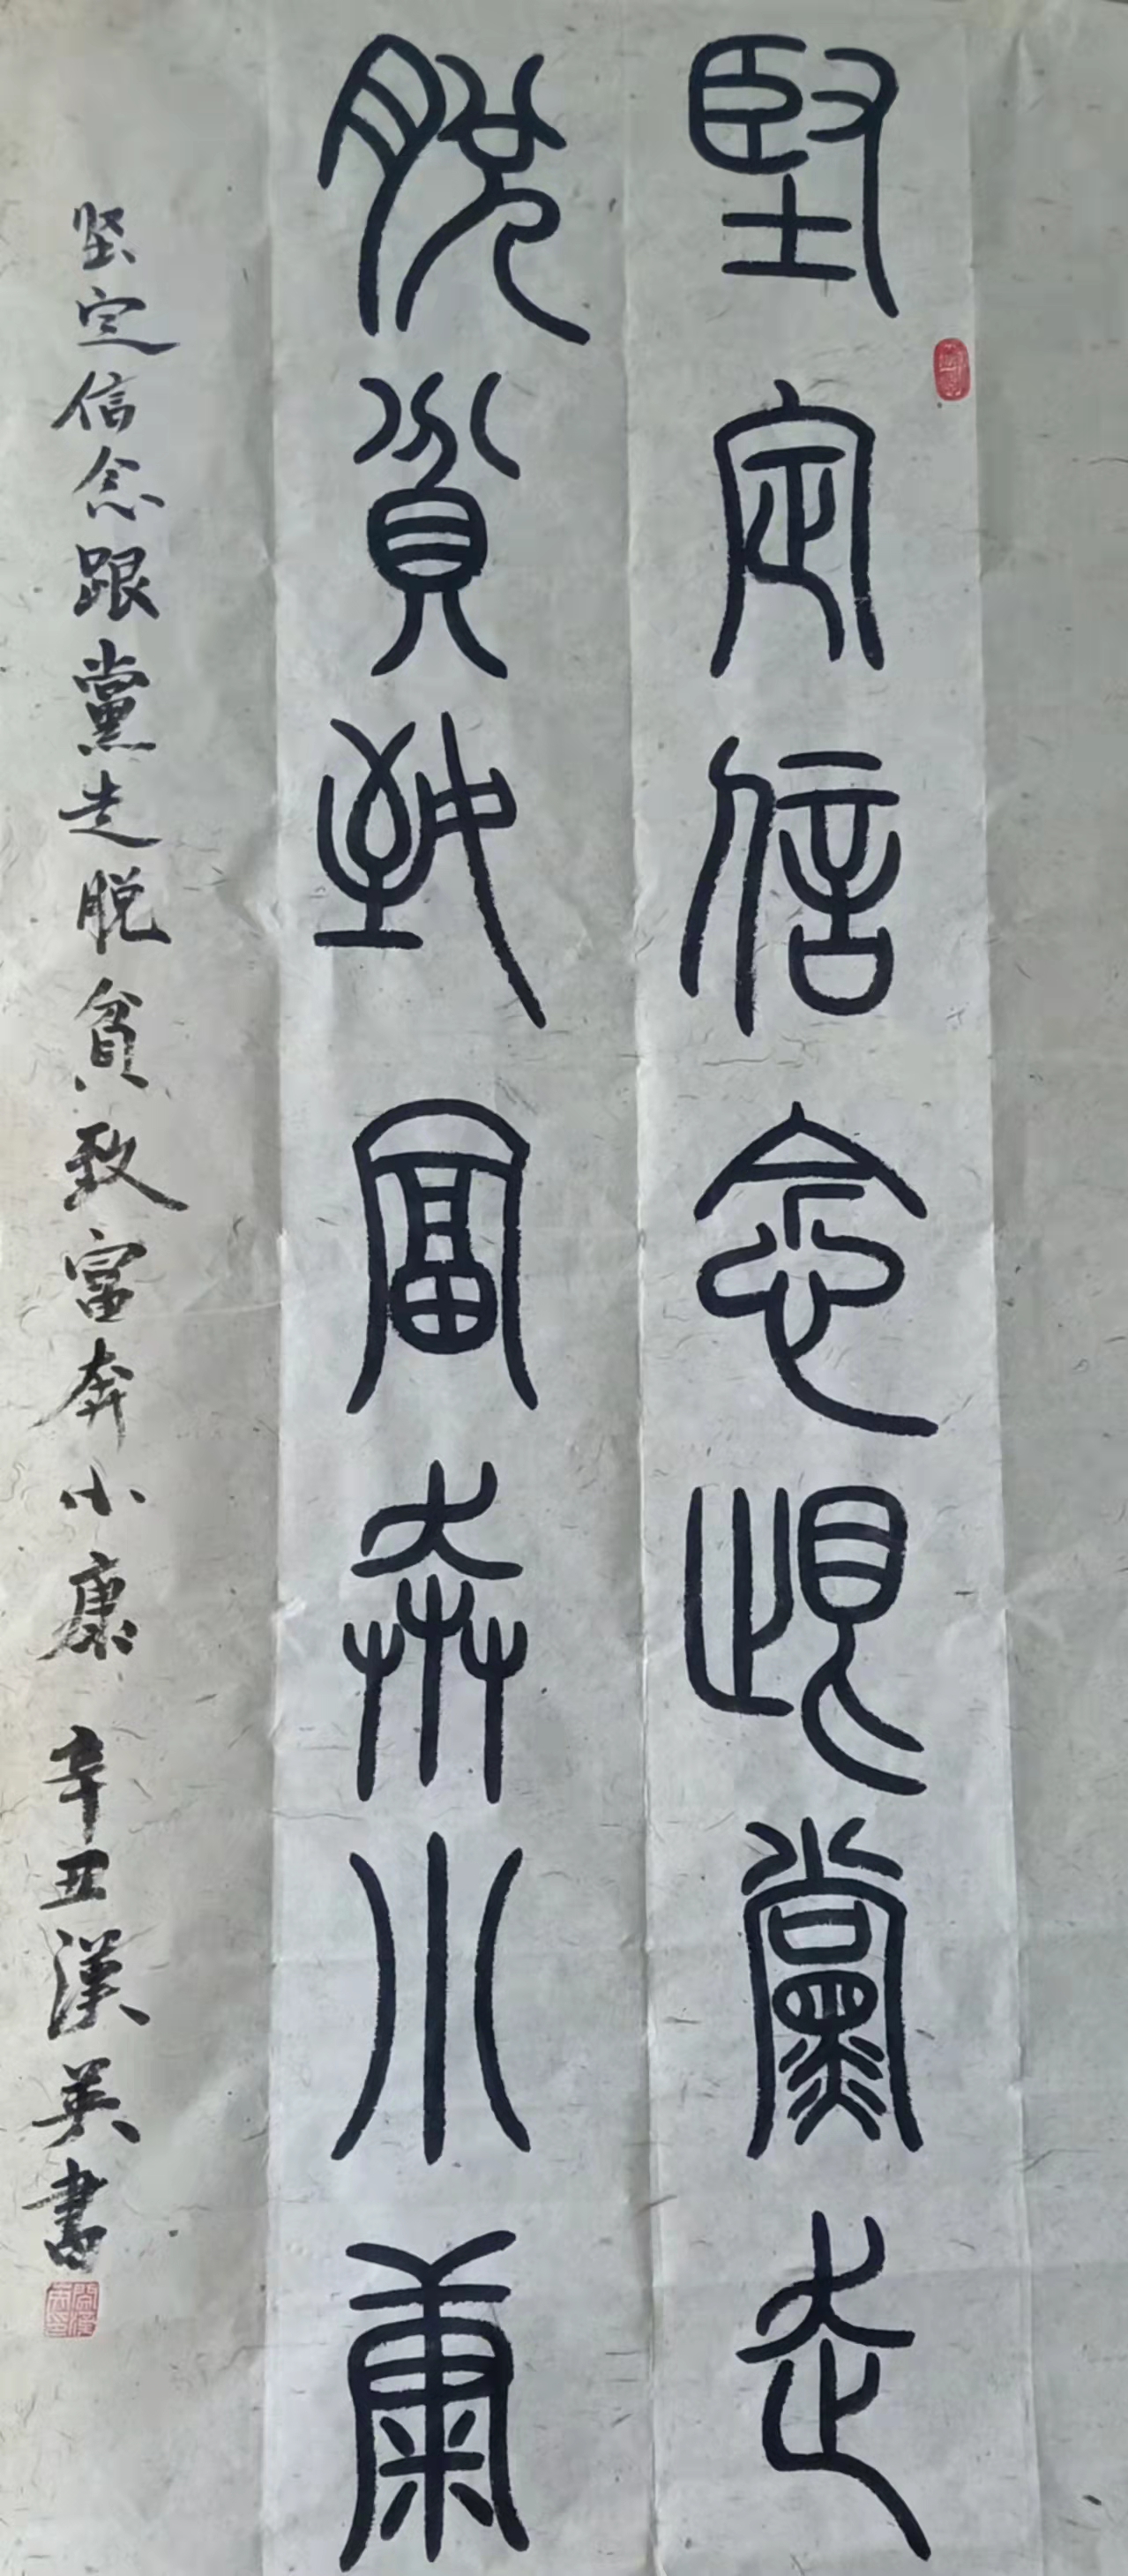 堅定信念跟黨走
脱貧致富奔小康
坚定信念跟黨走脱貧致富奔小康 辛丑漢英書